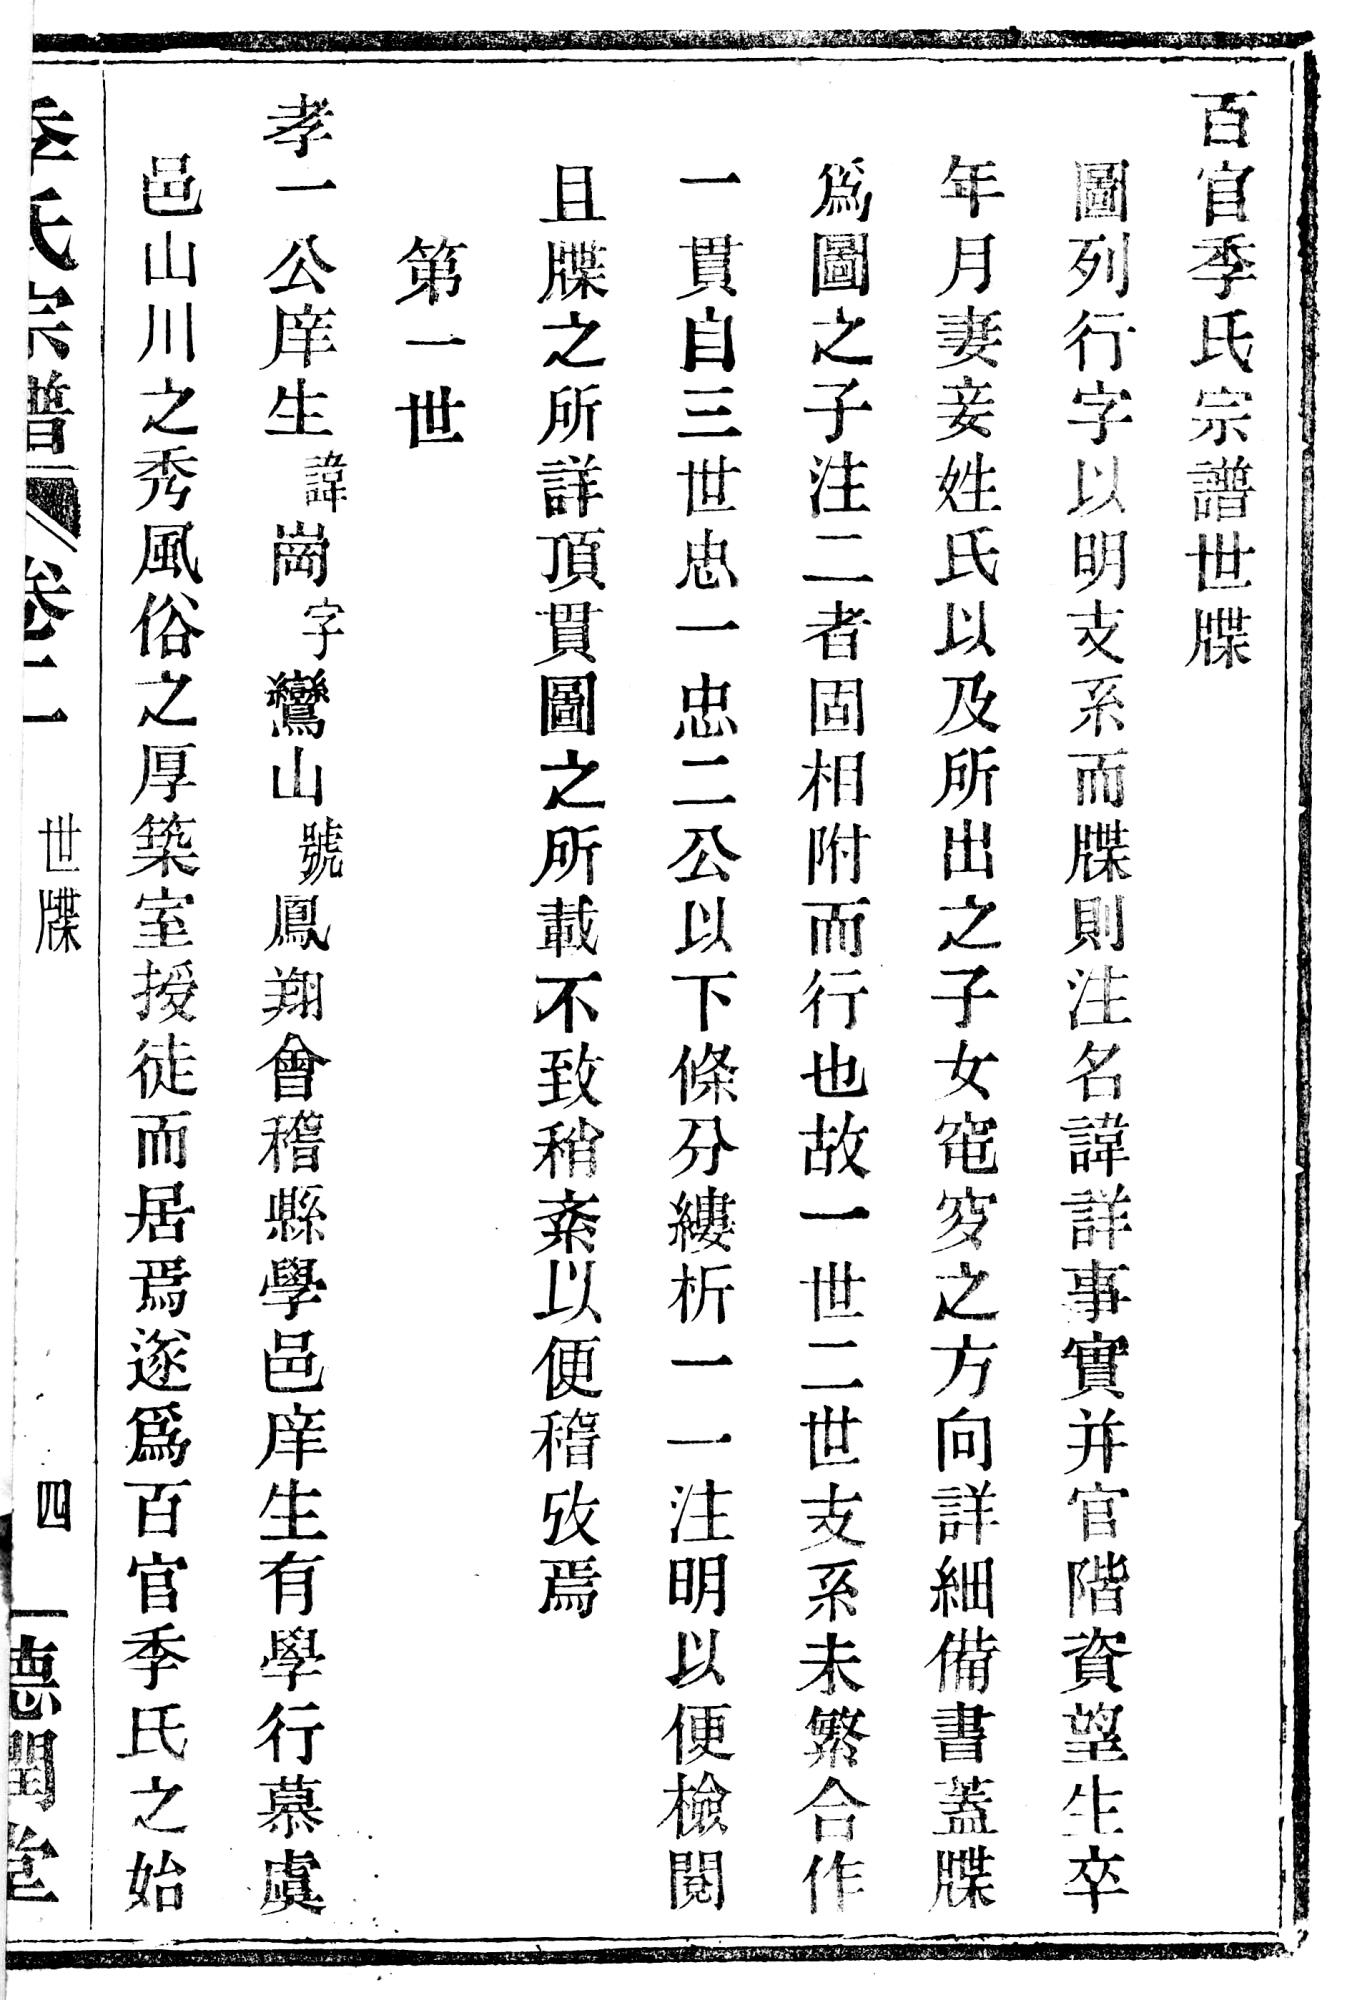 百官季氏宗譜世牒
圖列行字以明支系而牒則注名諱詳事實并官階資望生卒
年月妻妾姓氏以及所出之子女窀穸之方向詳細備書蓋牒
爲圖之子注二者固相附而行也故一世二世支系未繁合作
一貫自三世忠一忠二公以下條分縷析一一注明以便檢閱
且牒之所詳頂貫圖之所載不致稍紊以便稽攷焉
第一世
孝一公庠生諱崗字鸞山號鳳翔會稽縣學邑庠生有學行慕虞
邑山川之秀風俗之厚築室授徒而居焉遂爲百官季氏之始
季氏宗譜 卷二 世牒 四 一德潤堂